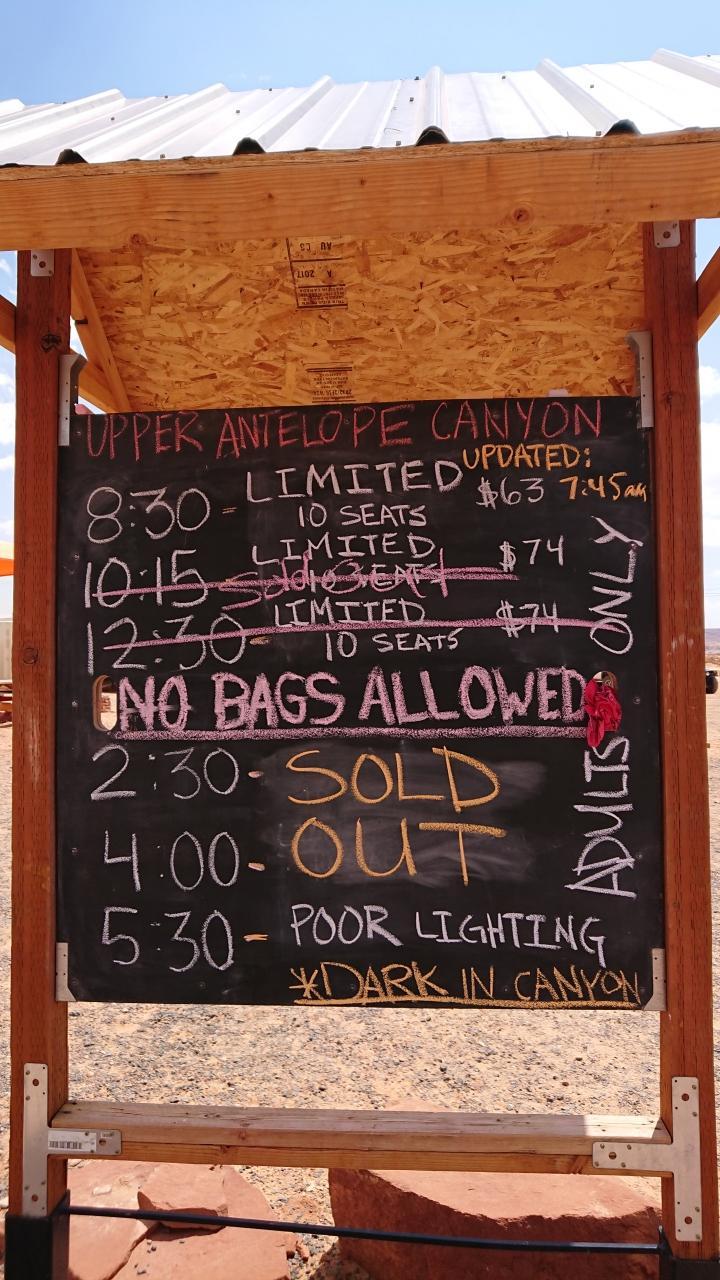 AU C3
A 2017
UPPER ANTELOPE CANYON
UPDATED:
7:45am
8:30 - LIMITED $63
10 SEATS
10:15 - LIMITED $74
10 SEATS
Sold Out
12:30 - LIMITED $74
10 SEATS
NO BAGS ALLOWED
2:30 - SOLD
4:00 - OUT
5:30 - POOR LIGHTING
*DARK IN CANYON
ADULTS ONLY